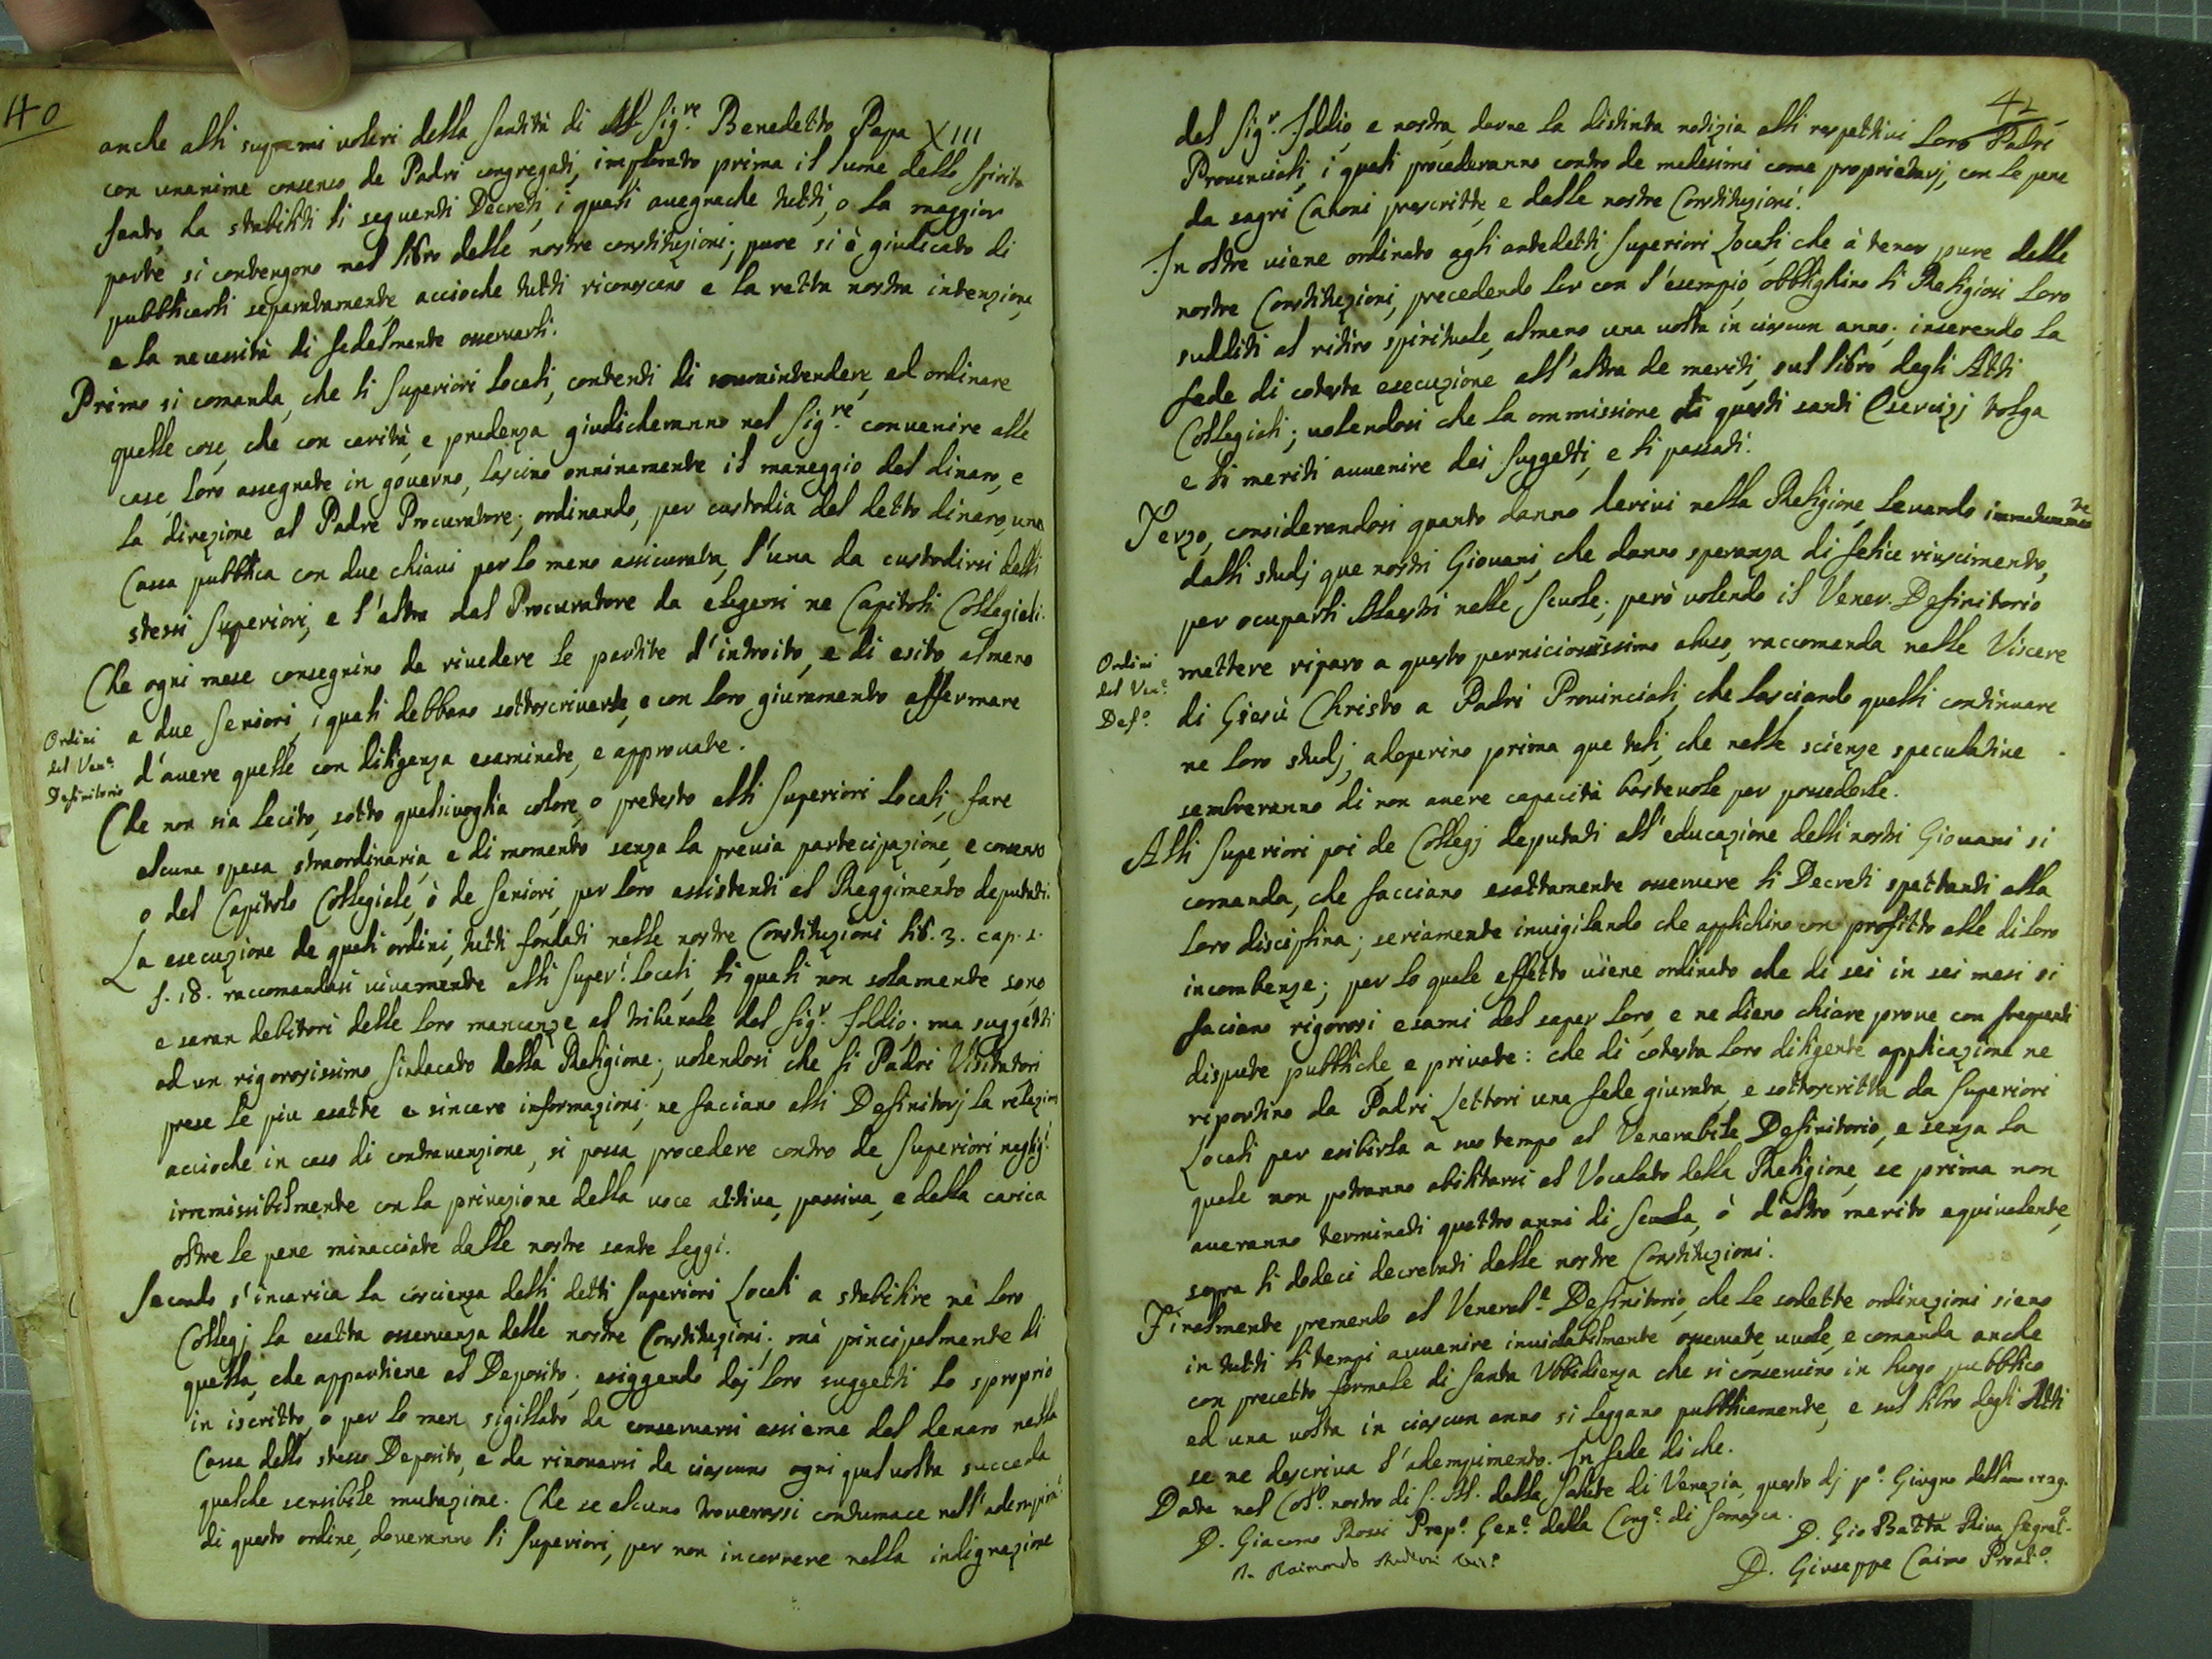 40
anche alli supremi voleri della Santità di N Sig.re Benedetto Papa XIII
con unanime consenso de Padri congregati, implorato prima il lume dello Spirito
Santo, ha stabiliti li seguenti Decreti, i quali avegnache tutti, o la maggior
parte si contengono nel libro delle nostre constituzioni; pure si è giudicato di
pubblicarli separatamente, accioche tutti riconoscano e la retta nostra intenzione,
e la necessità di fedelmente osservarli.
Primo si comanda, che li Superiori locali, contenti di sourintendere, ed ordinare
quelle cose, che con carità, e prudenza giudicheranno nel Sig.re convenire alle
case loro assegnate in governo, lascino onninamente il maneggio del dinaro, e
la direzione al Padre Procuratore; ordinando, per custodia del detto dinaro, una
Cassa pubblica con due chiavi per lo meno assicurata, l'una da custodirsi dalli
stessi Superiori, e l'altra dal Procuratore da elegersi ne Capitoli Collegiali.
Che ogni mese consegnino da rivedere le partite d'introito, e di esito, almeno
a due Seniori, i quali debbano sottoscriverle, e con loro giuramento affermare
d'avere quelle con diligenza esaminate, e approvate.
Ordini
del Ven.e
Definitorio
Che non sia lecito, sotto qualsivoglia colore, o pretesto alli Superiori Locali, fare
alcuna spesa straordinaria, e di momento senza la previa partecipazione, e consenso
o del Capitolo Collegiale, ò de Seniori, per loro assistenti al Reggimento deputati.
La esecuzione de quali ordini, tutti fondati nelle nostre Constituzioni lib. 3. cap. 1.
f. 18. raccomandasi vivamente alli Super.i locali, li quali non solamente sono
e saran debitori delle loro mancanze al tribunale del Sig.r Iddio; ma suggetti
ad un rigorosissimo Sindacato della Religione; volendosi che li Padri Visitatori
prese le piu esatte e sincere informazioni, ne faciano alli Definitorj la relazione
accioche in caso di contravenzione, si possa procedere contro de Superiori neglig.i
irremissibilmente con la privazione della voce attiva, passiva, e della carica
oltre le pene minacciate dalle nostre sante leggi.
Secondo s'incarica la coscienza delli detti Superiori Locali a stabilire nè loro
Collegj la esatta osservanza delle nostre Constituzioni; mà pincipalmente di
quella, che appartiene al Deposito; esiggendo dej loro suggetti lo sproprio
in iscritto, o per lo men sigillato da conservarsi assieme del denaro nella
Cassa dello stesso Deposito, e da rinovarsi da ciascuno ogni qual volta succeda
qualche sensibile mutazione. Che se alcuno troverassi contumace nell'adempim.to
di questo ordine, doveranno li Superiori, per non incorrere nella indignazione
del Sig.r Iddio, e nostra, darne la distinta notizia alli respettivi loro Padri
Provinciali, i quali procederanno contro de medesimi come proprietarj, con le pene
da sagri Canoni prescritte, e dalle nostre Constituzioni.
In oltre viene ordinato agli antedetti Superiori Locali, che à tenor pure delle
nostre Constituzioni, precedendo lor con l'esempio, obblighino li Religiosi loro
sudditi al ritiro spirituale, almeno una volta in ciascun anno; inserendo la
fede di cotesta esecuzione all'altra de meriti, sul libro degli Atti
Collegiali; volendosi che la ommissione di questi santi Esercizj tolga
e li meriti avvenire dei suggetti, e li passati.
Terzo, considerandosi quanto danno derivi nella Religione, levando immaturam.te
dalli studj que nostri Giovani, che danno speranza di felice riuscimento,
per ocuparli Maestri nelle Scuole; però volendo il Vener. Definitorio
mettere riparo a questo perniciosissimo abuso, raccomanda nelle Viscere
di Giesù Christo a Padri Provinciali, che lasciando quelli continuare
ne loro studj, adoperino prima que tali, che nelle scienze speculative
sembreranno di non avere capacità bastevole per possederle.
Ordini
del Ven.e
Def.o
Alli Superiori poi de Collegj deputati all'educazione delli nostri Giovani si
comanda, che facciano esattamente osservare li Decreti spettanti alla
loro disciplina; seriamente invigilando che applichino con profitto alle di loro
incombenze; per lo quale effetto viene ordinato che di sei in sei mesi si
faciano rigorosi esami del saper loro, e ne dieno chiare prove con frequenti
dispute pubbliche, e private: che di cotesta loro diligente applicazione ne
riportino da Padri Lettori una fede giurata, e sottoscritta da Superiori
Locali per esibirla a suo tempo al Venerabile Definitorio, e senza la
quale non potranno abilitarsi al Vocalato della Religione, se prima non
averanno terminati quattro anni di Scuola, ò d'altro merito equivalente,
sopra li dodeci decretati dalle nostre Constituzioni.
Finalmente premendo al Venerab.e Definitorio, che le sodette ordinazioni sieno
in tutti li tempi avvenire inviolabilmente osservate, vuole, e comanda anche
con precetto formale di Santa Ubbidienza che si conservino in luogo pubblico
ed una volta in ciascun anno si leggano pubblicamente, e sul libro degli Atti
se ne descriva l'adempimento. In fede di che.
Data nel Coll.o nostro di S. M. della Salute di Venezia, questo dj p.o Giugno dell'anno 1729.
D. Giacomo Rossi Prep.o Gen.e della Cong.e di Somasca.
D. Gio Batta Riva Segret.o
D. Giuseppe Caimo Proal.o